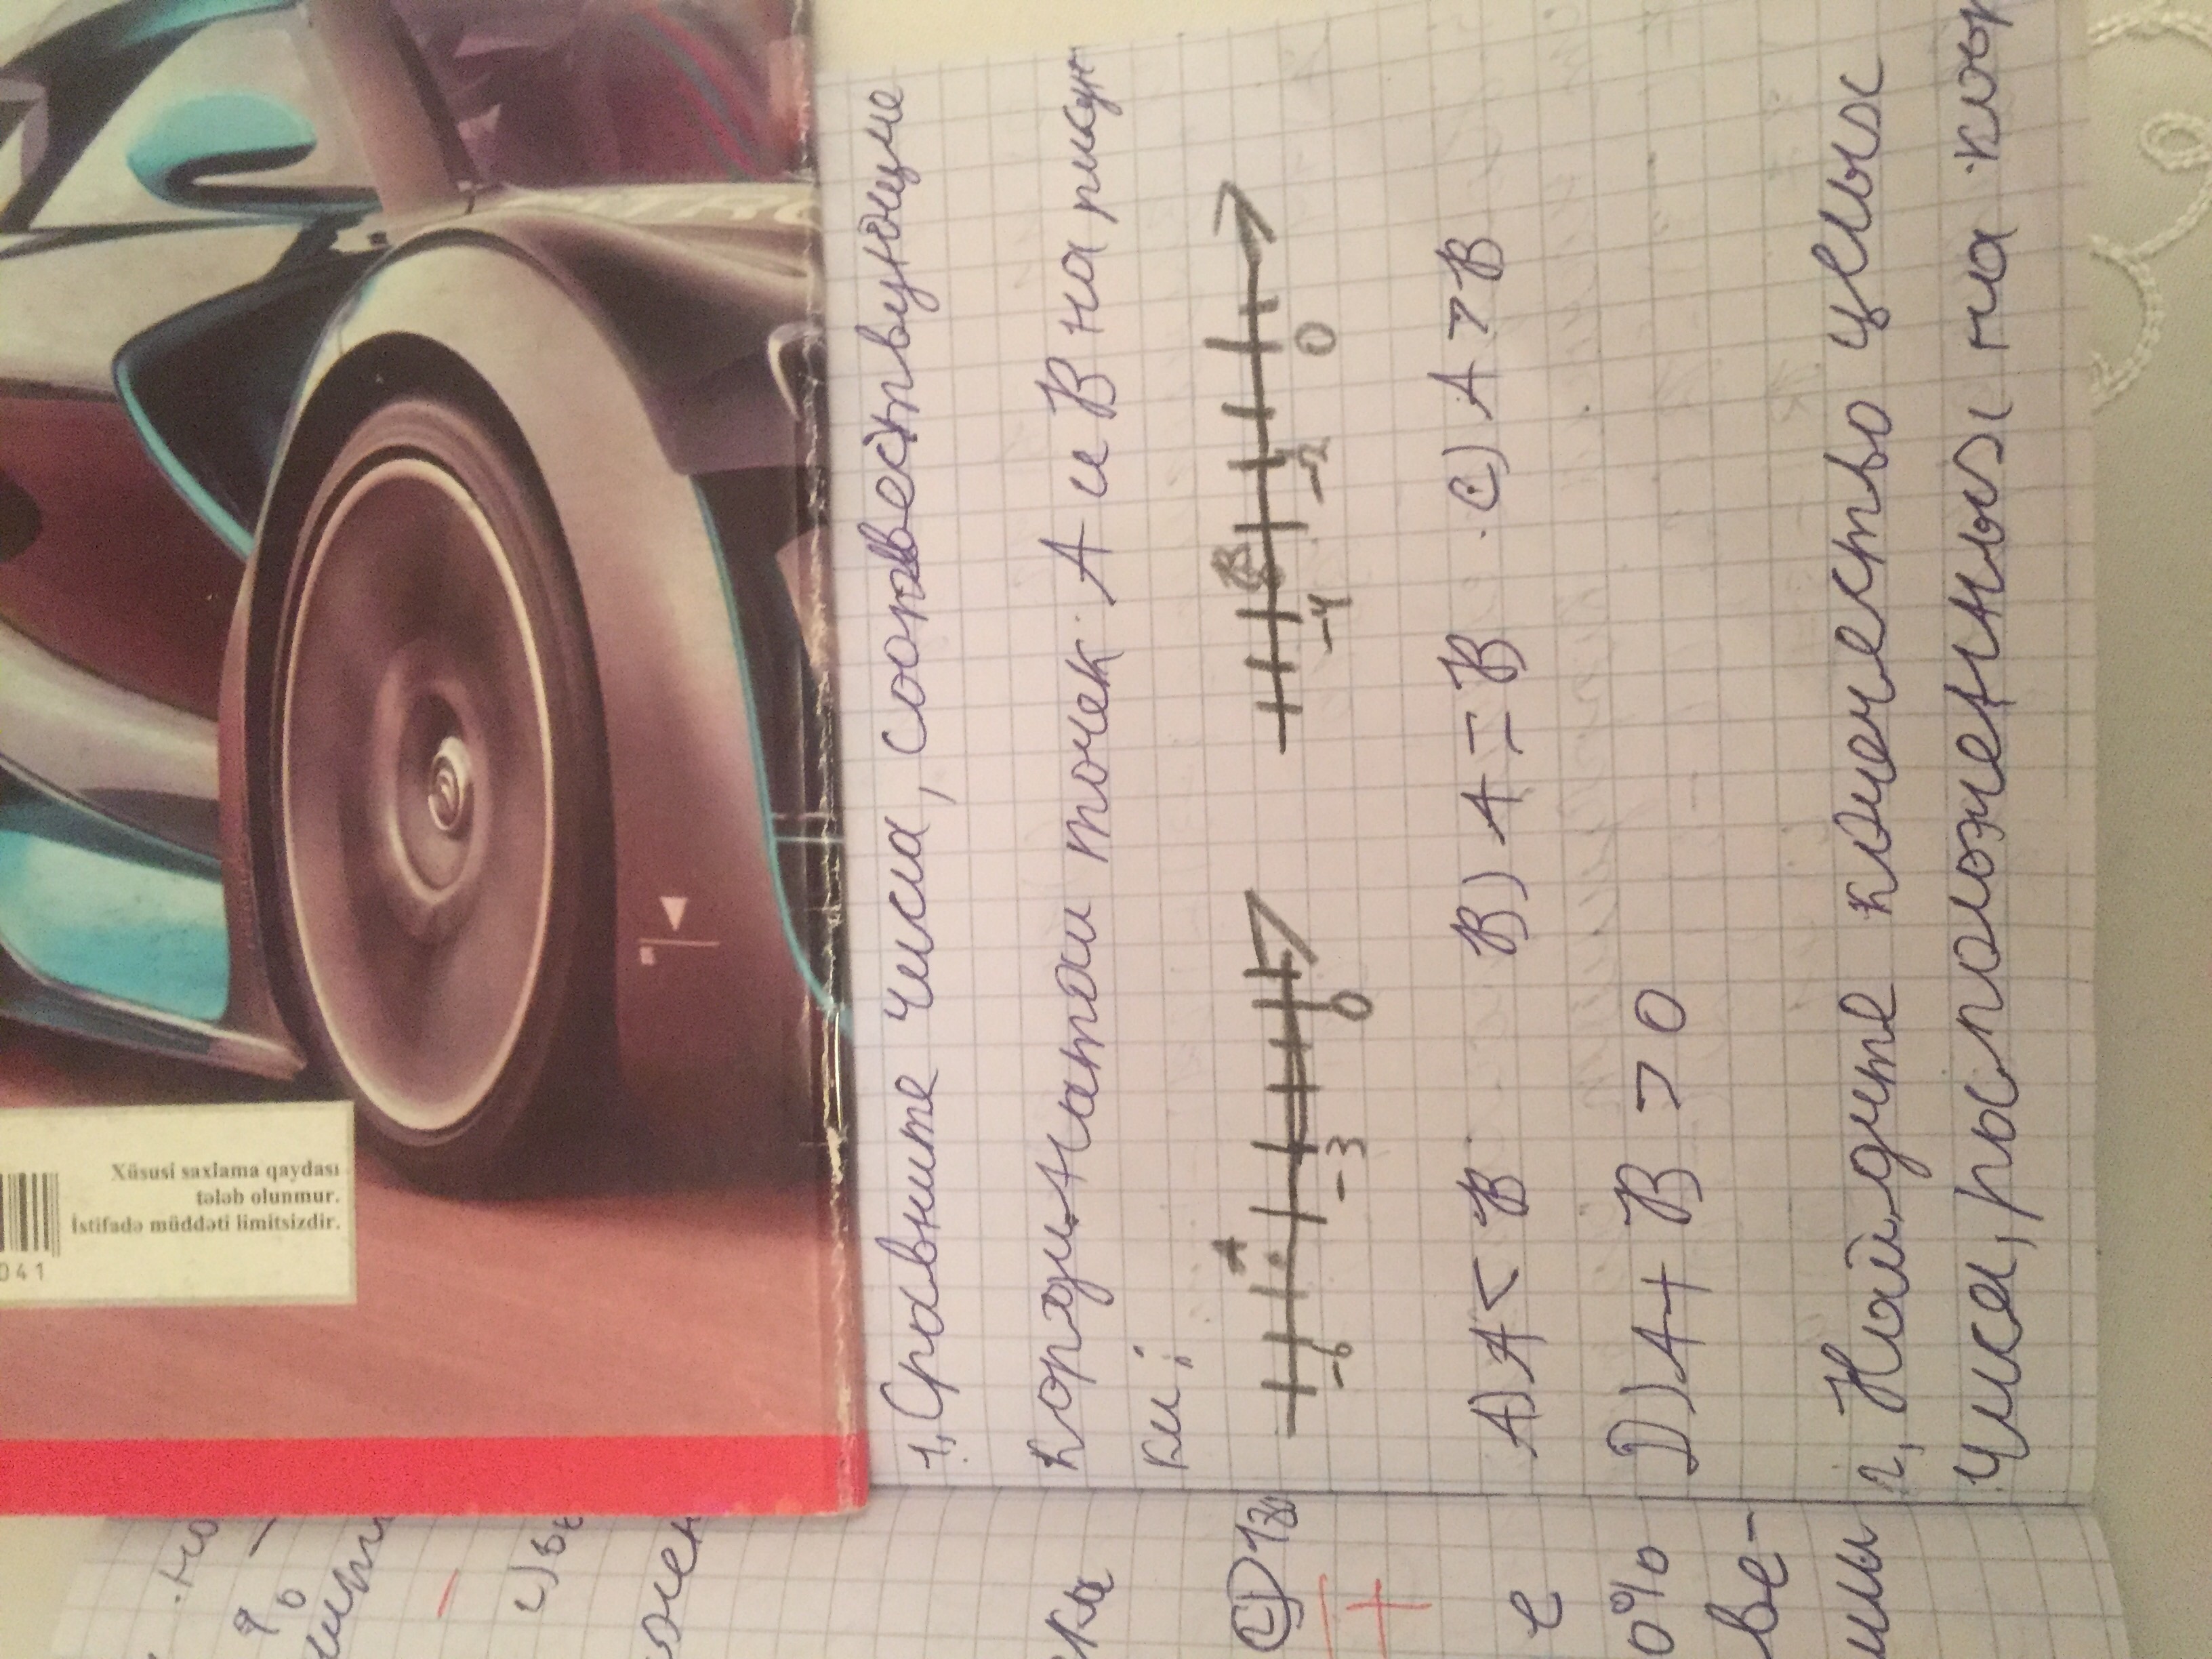 1, Сравните числа, соответствующие
координатам точек A и B на рисун
ки;
A
-6 -3 0
B
-4 -2 0
A) A < B B) A = B C) A > B
D) A + B > 0
2, Найдите количество целых
чисел, расположенных на
Xüsusi saxlama qaydası
tələb olunmur.
İstifadə müddəti limitsizdir.
041
C)
0%
ве-